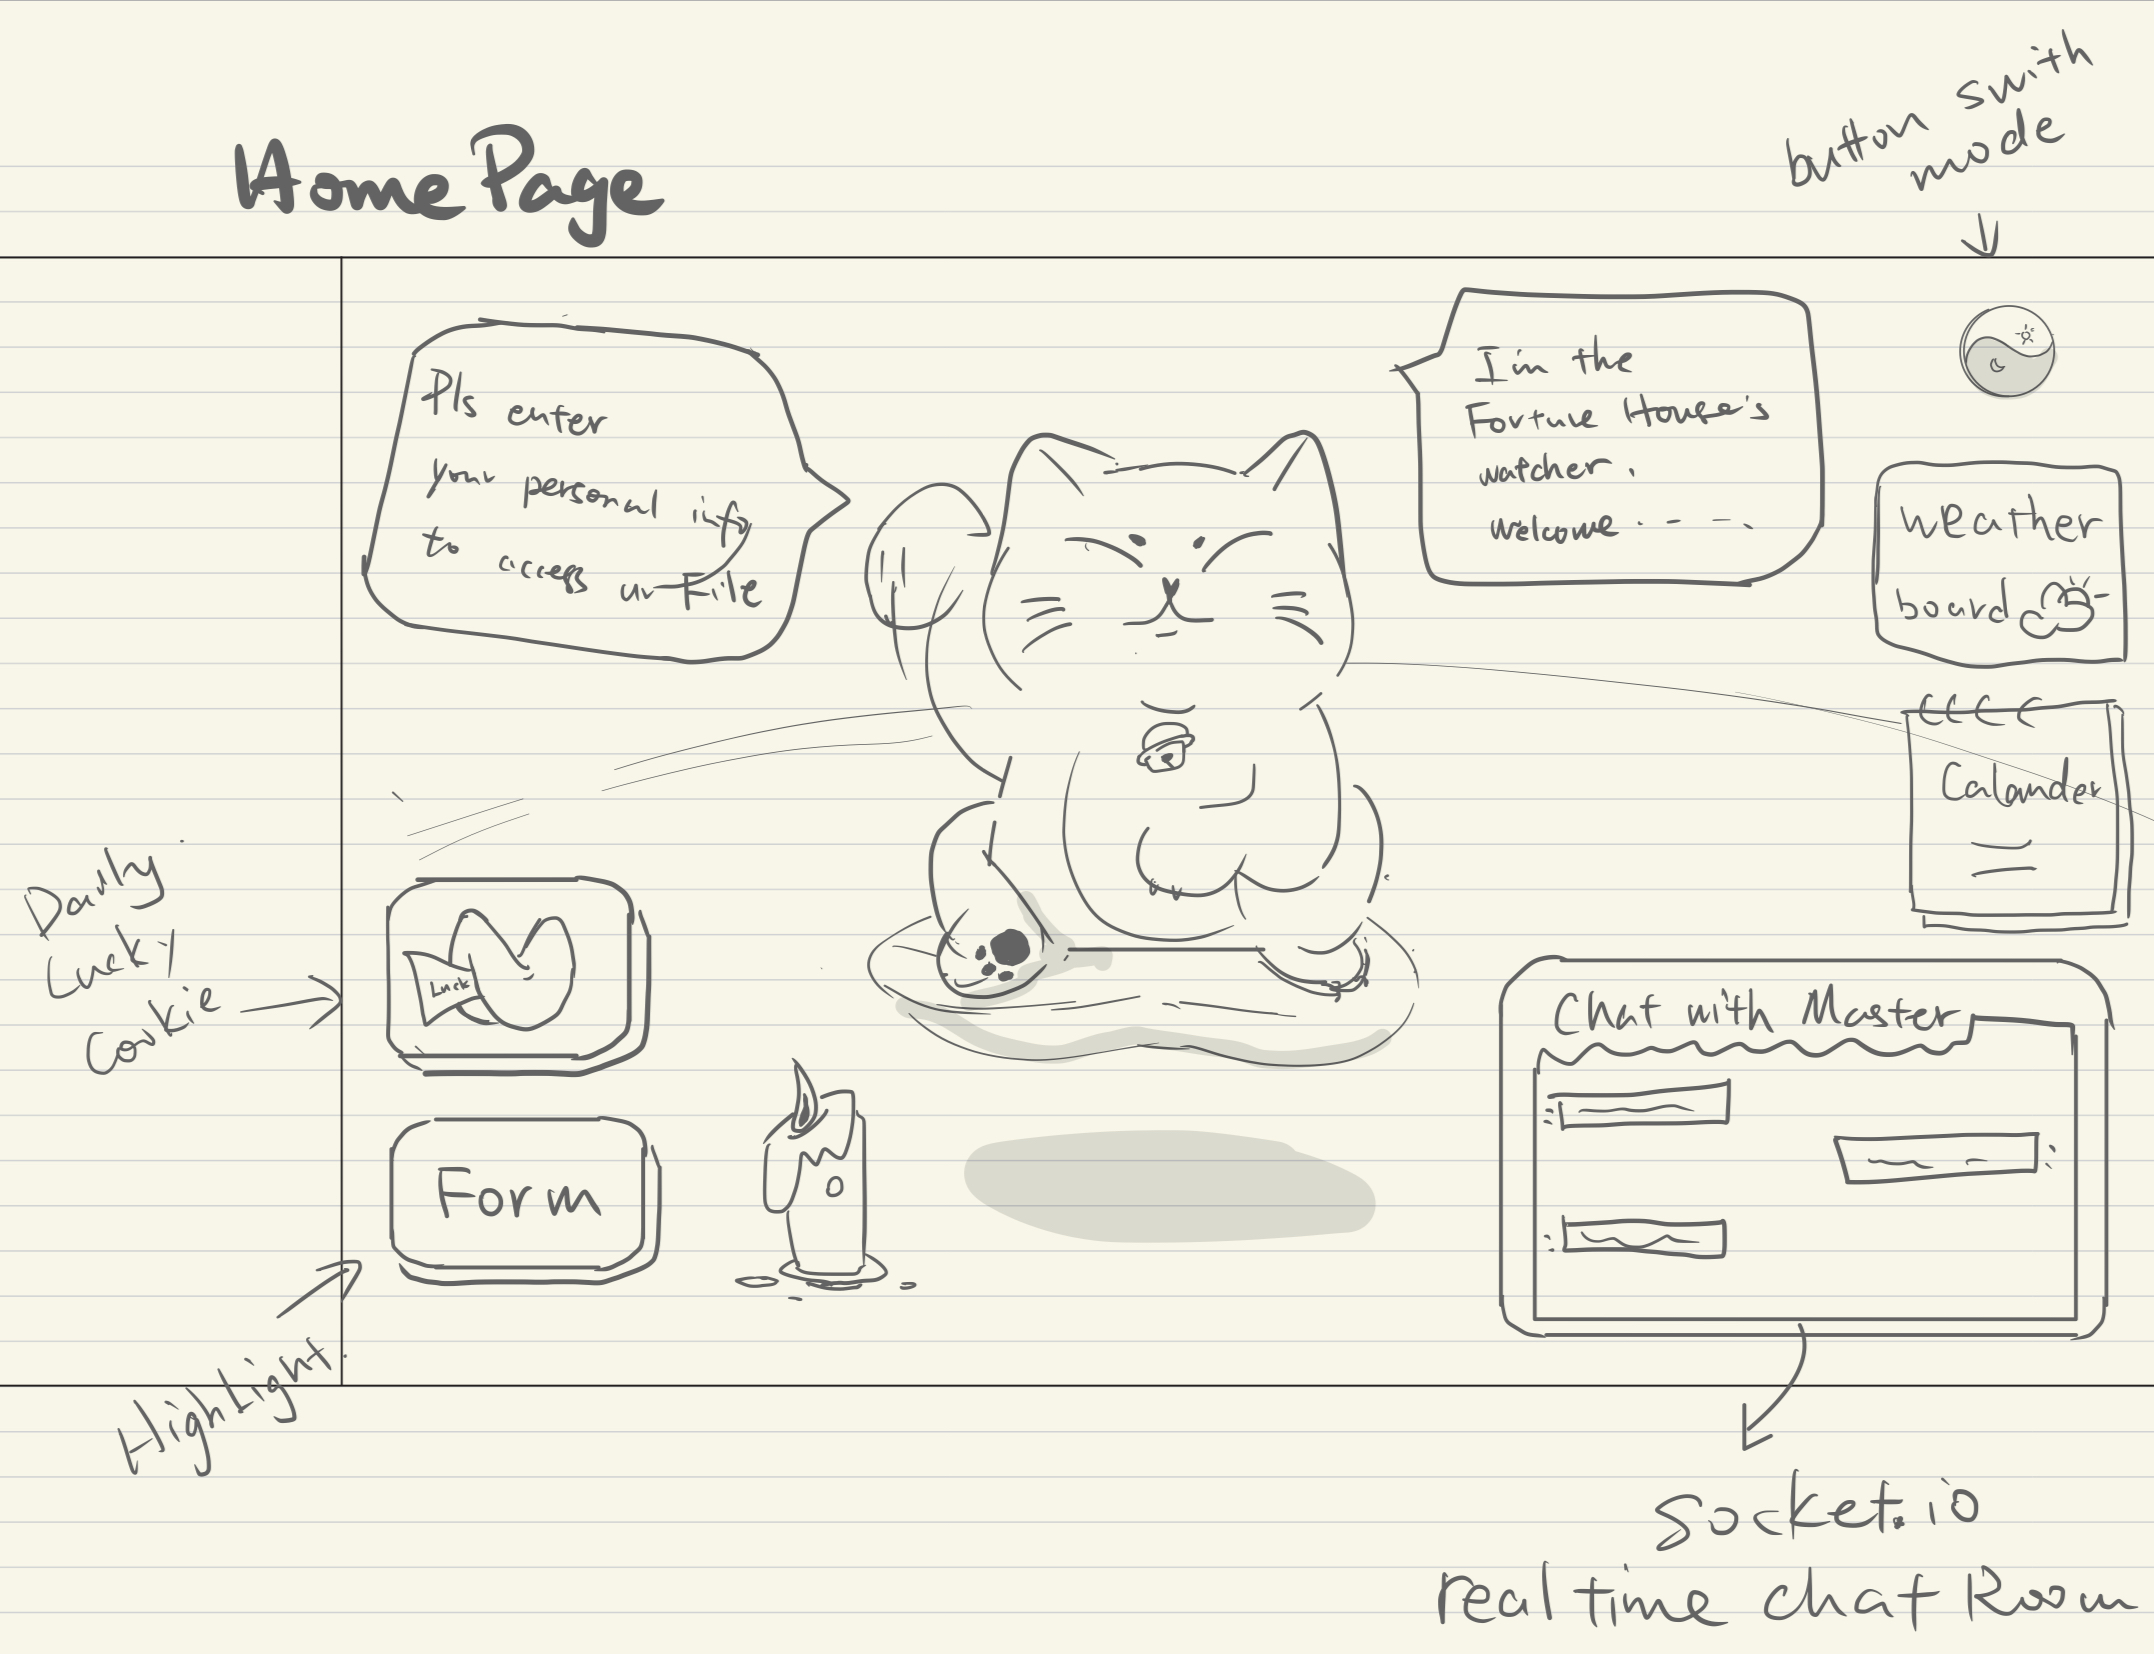 Home Page
button swith
mode
Pls enter
your personal info
to access ur File
I'm the
Fortune House's
watcher.
Welcome - - - -
weather
board
Calander
Daily
Lucky
Cookie
Luck
Form
HighLight
Chat with Master
Socket.io
real time chat Room